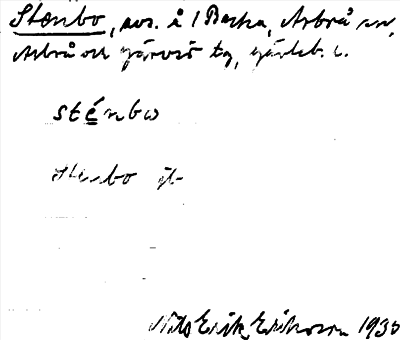 Stenbo, avs. å 1 Backa, Arbrå sn,
Arbrå och Järvsö tg, Gävleb. l.
sténbω
Stenbo jb
Nils Erik Eriksson 1935